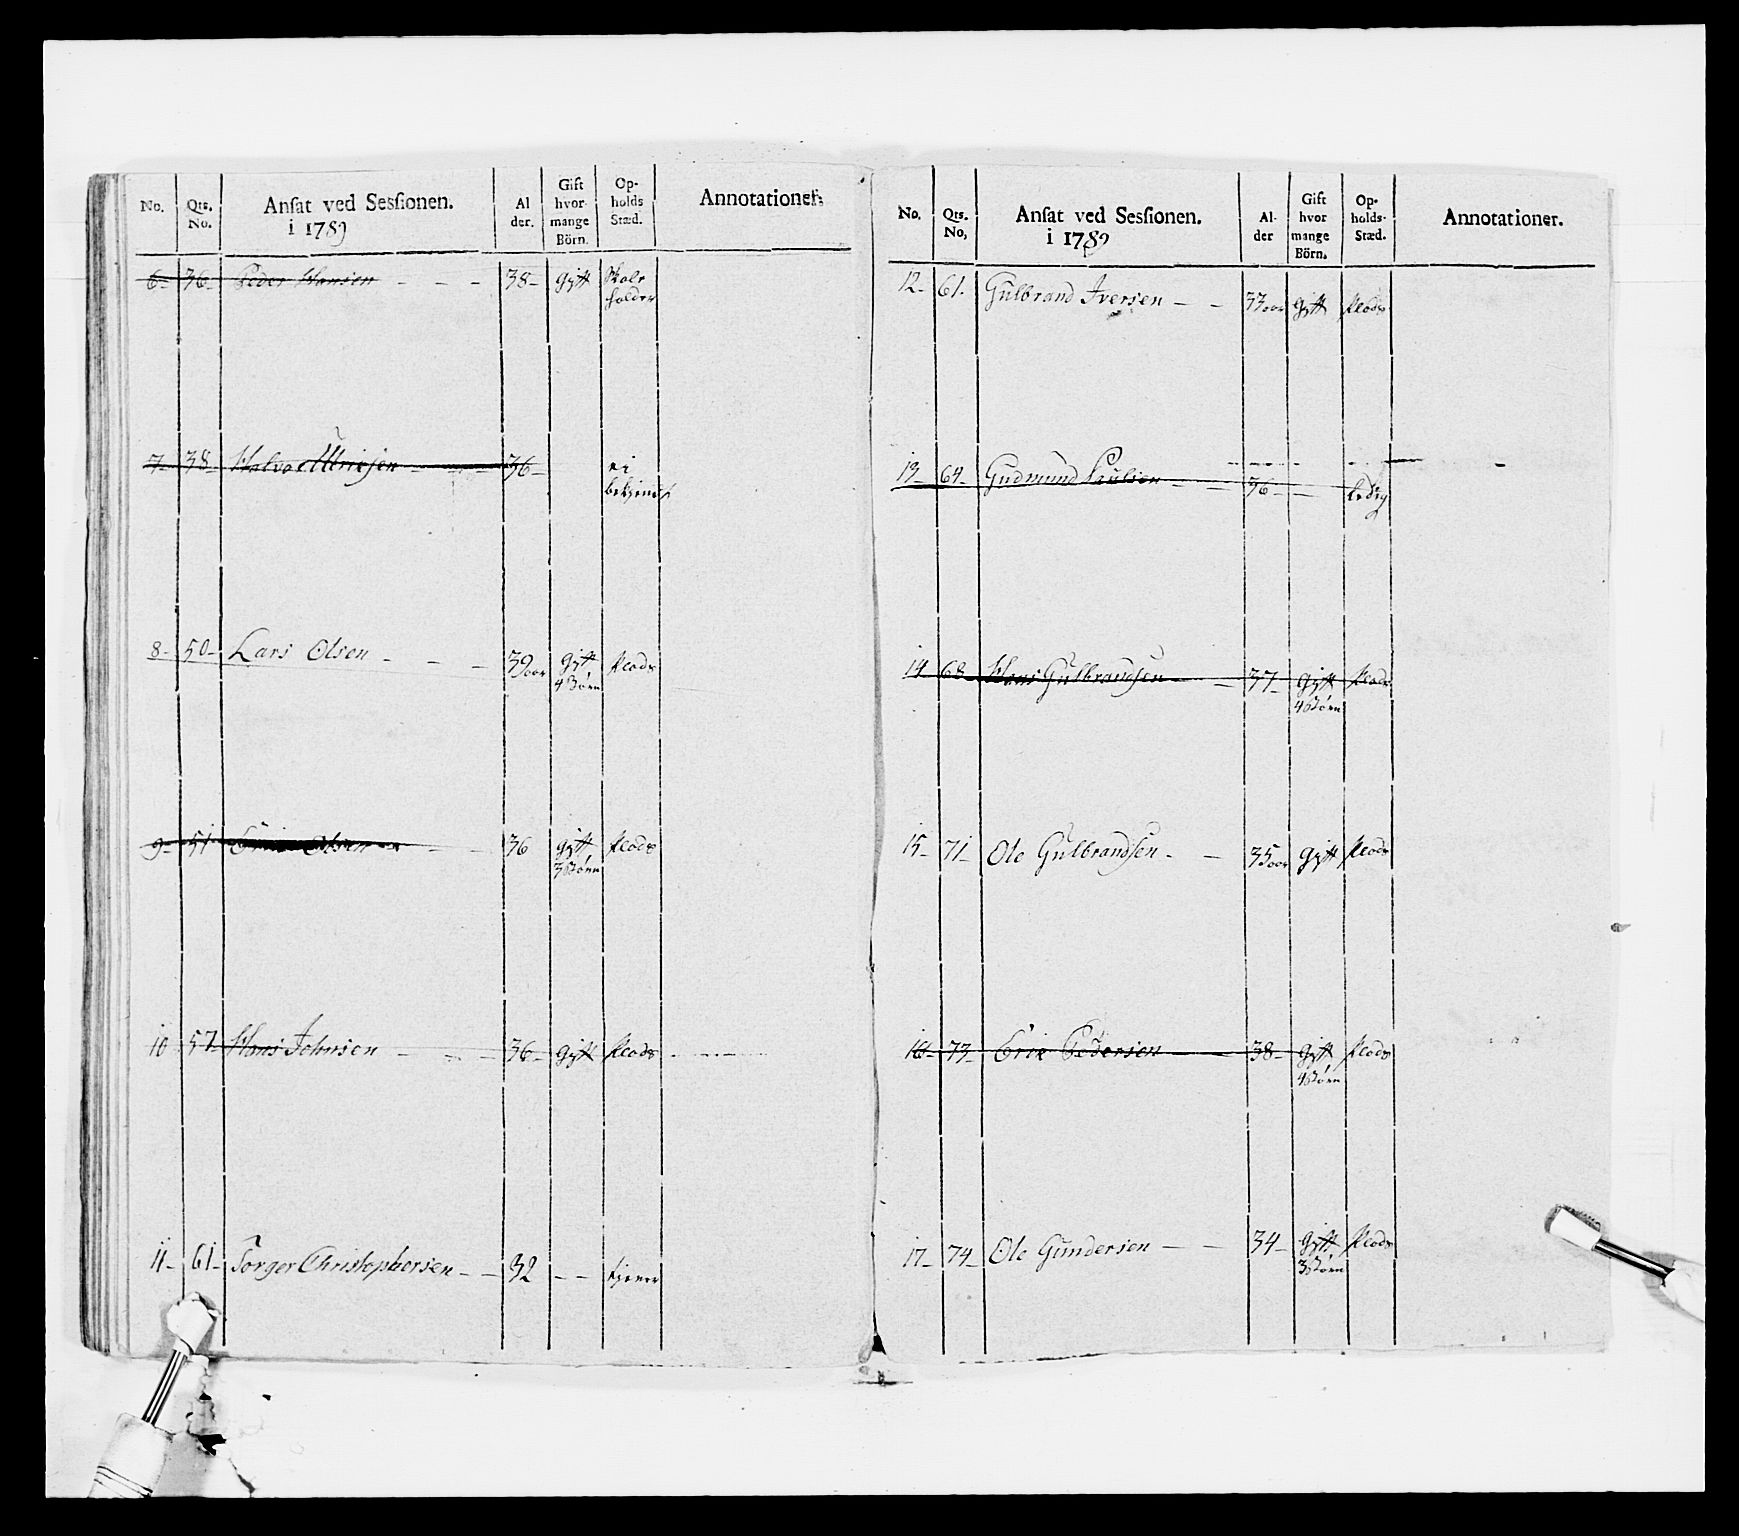 No. Qts. No. Ansat ved Sessionen. i 1789 Al der. Gift hvor- mange Börn. Op- holds Stæd. Annotationer.
6- 36- Peder Hansen - - - 38- gift Skole
holder
7- 38- Halvor - - 36- ei
bekiendt
8- 50- Lars Olsen - - - 39 aar gift Plads
4 Börn
9- 51- Olsen - - 36 gift Plads
3 Börn
10 57- Hans Johnsen - - - 36- gift Plads
11- 61- Torger Christophersen - - 32 - - tjener
No. Qts. No, Ansat ved Sessionen. i 1789 Al- der Gift hvor mange Börn. Op- holds- Stæd. Annotationer.
12- 61- Gulbrand Iversen - - 33 aar gift Plads
13- 64- Gudmund Paulsen - - 36- - ledig
14 68- Hans Gulbrandsen - - 37- gift Plads
4 Börn
15- 71- Ole Gulbrandsen - - 35 aar gift Plads
16- 73- Eric Pedersen - - 38- gift Plads
4 Börn
17- 74- Ole Gundersen - - 34- gift Plads
3 Börn